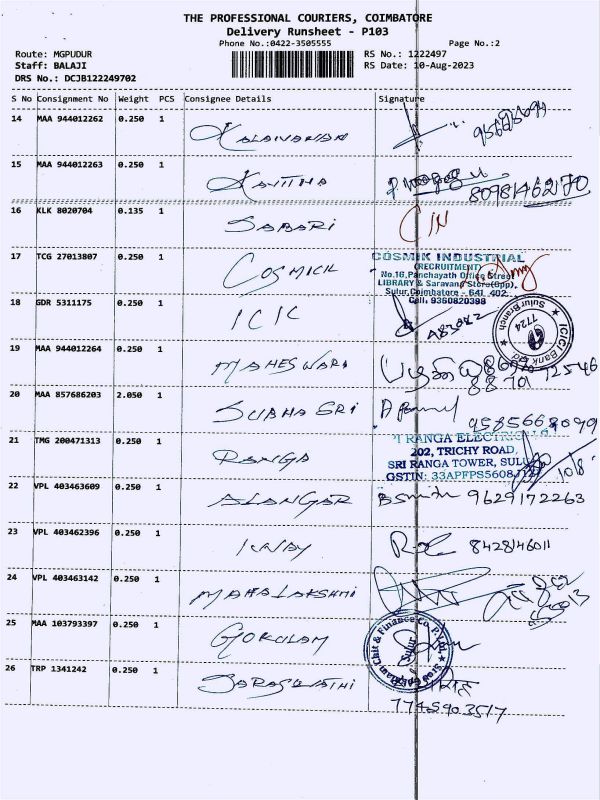 THE PROFESSIONAL COURIERS, COIMBATORE
Delivery Runsheet - P103
Phone No.:0422-3505555 Page No.:2
Route: MGPUDUR RS No.: 1222497
Staff: BALAJI RS Date: 10-Aug-2023
DRS No.: DCJB122249702
S No Consignment No Weight PCS Consignee Details Signature
14 MAA 944012262 0.250 1 KALAIVANAN
15 MAA 944012263 0.250 1 KAVITHA
80981462170
16 KLK 8020704 0.135 1 SABARI C/N
17 TCG 27013807 0.250 1 COSMICK
COSMIK INDUSTRIAL
(RECRUITMENT)
No.16,Panchayath Office Street
LIBRARY & Saravana Store(Opp),
Sulur,Coimbatore - 641 402.
Cell: 9360820398
18 GDR 5311175 0.250 1 ICIC
ICICI Bank Ltd
Sulur Branch
7724
19 MAA 944012264 0.250 1 MAHESWARI
20 MAA 857686203 2.050 1 SUBHA SRI
9585668099
21 TMG 200471313 0.250 1 RANGA
RANGA
202, TRICHY ROAD,
SRI RANGA TOWER,
10/8
22 VPL 403463609 0.250 1 ALANGAR 9629172263
23 VPL 403462396 0.250 1 8428146011
24 VPL 403463142 0.250 1 MAHALAKSHMI
25 MAA 103793397 0.250 1 GOKULAM
Chit & Finance Co. P. Ltd.
Sulur
26 TRP 1341242 0.250 1 SARASWATHI
7745903517